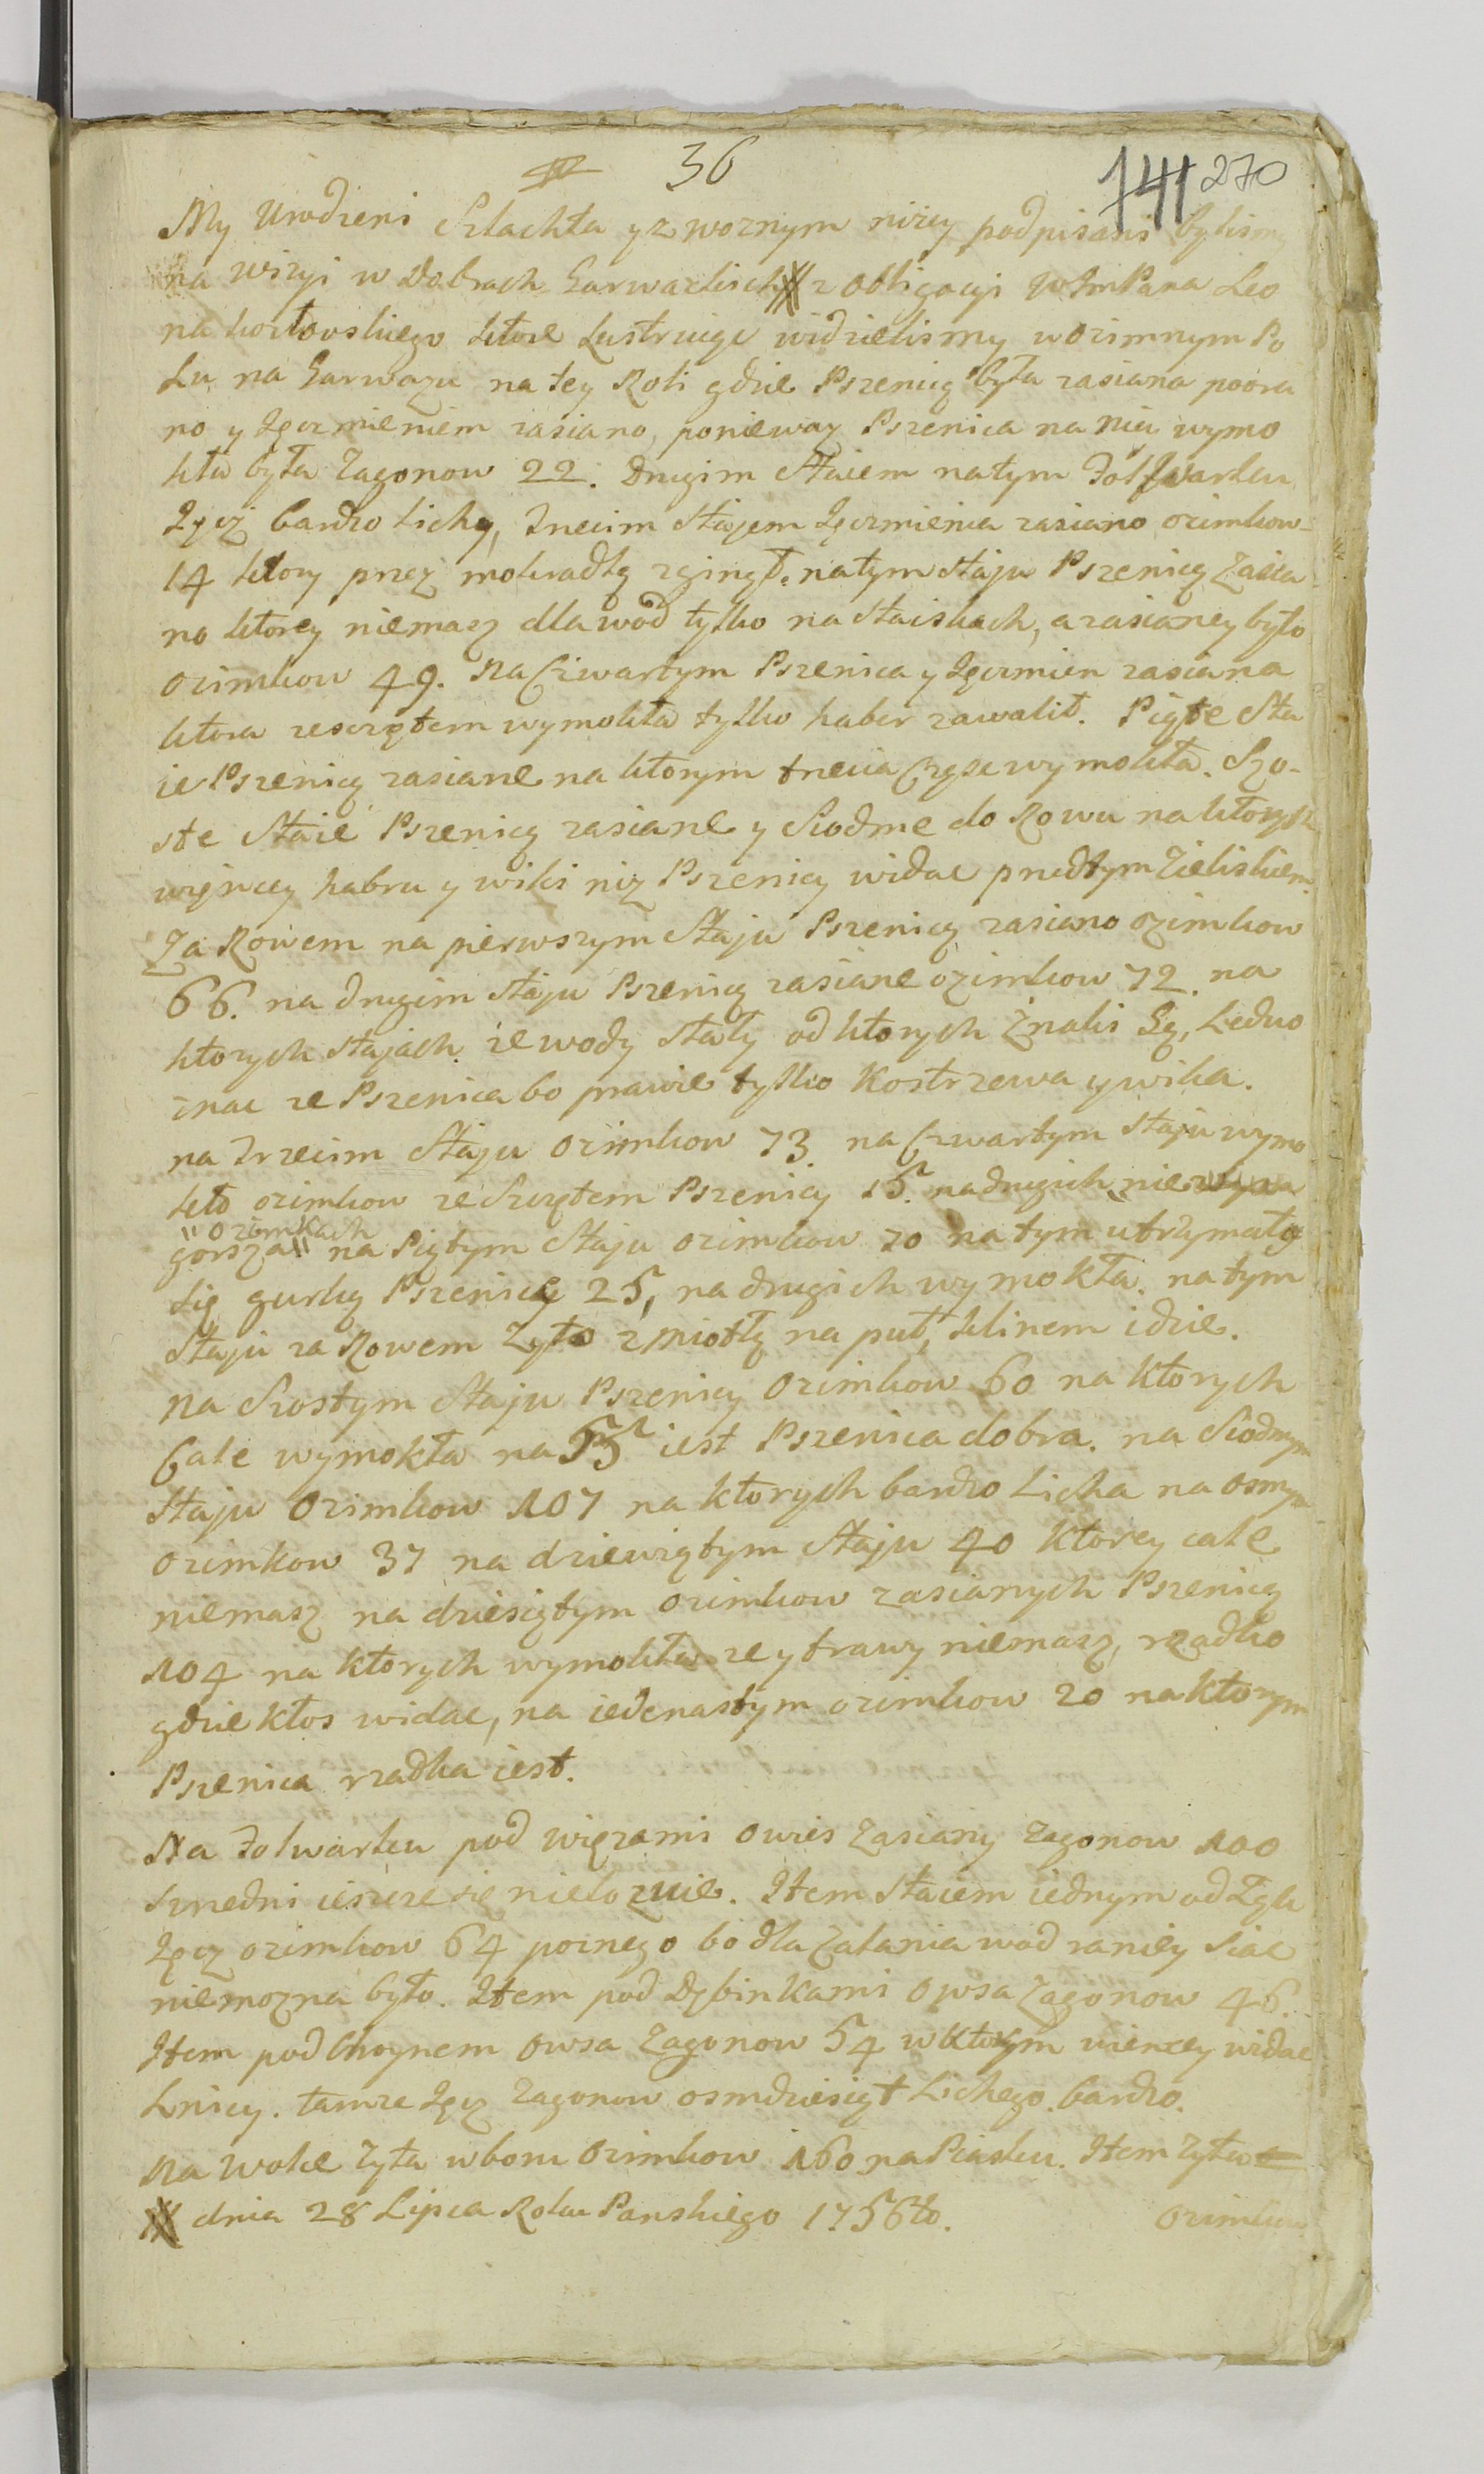 36
141 270
My Urodzeni Szlachta y z woznym niżey podpisani bylismy
na wizyi w Dobrach Garwackich # z obligacyi WJmPana Leo
na kozłowskiego ktore Lustruiąc widzielismy w ozimnym Po
Lu na Garwazu na tey Roli gdzie Pszenicą była zasiana poora
no y Jęczmieniem zasiano, ponieway Pszenica na niey wymo
kła była Zagonow 22. Drugim Staiem na tym Folwarku
Jęcz bardzo lichy, Trzecim Stajem Jęczmienia zasiano ozimkow
14 ktory przez mokradłą zginął. na tym staju Pszenicą Zasia
no ktorey niemasz dla wod tylko na Staiskach, a zasianey było
ozimkow 49. Na Czwartym Pszenica y Jęczmien zasiana
ktora ze szczętem wymokła tylko haber zawalił. Piąte Sta
ie Pszenicą zasiane na ktorym trzecia częsc wymokła. Szo-
ste Staie Pszenicą zasiane y Siodme do Rowu na ktorych
więncey habru y wiki niz Pszenicy widac przedtym Zieliskiem
Za Rowem na pierwszym Staju Pszenicą zasiano ozimkow
66. na drugim staju Pszenicą zasiane ozimkow 72. na
ktorych stajach ze wody stały od ktorych Znaki Są, Ledwo
znac ze Pszenica bo prawie tylko Kostrzewa y wika.
na Trzecim Staju ozimkow 73 na Czwartym Staju wymo
kło ozimkow ze Szczętem Pszenicy 15. na drugich nie
"ozimkach
gorsza" na Piątym Staju ozimkow 70 na tym utrzymało
się gurką Pszenicę 25, na drugich wymokła. na tym
Staju za Rowem Zyto z miotłą na puł, klinem idzie.
Na Szostym Staju Pszenicy Ozimkow 60 na ktorych
Cale wymokła na 55 iest Pszenica dobra. na Siodmym
Staju Ozimkow 107 na ktorych bardzo Licha na osmym
ozimkow 37 na dziewiątym Staju 40 ktorey cale
niemasz na dziesiątym ozimkow zasianych Pszenicą
104 na ktorych wymokła ze y trawy niemasz, rzadko
gdzie kłos widac, na iedenastym ozimkow 20 na ktorym
Pszenica rzadka iest.
Na Folwarku pod więzami owies Zasiany Zagonow 100
szredni ieszcze się nie łoznie. Item Staiem iednym od Łąk
Jęcz ozimkow 64 poznego bo dla Zalania wod raniey siac
niemozna było. Item pod Dębinkami Owsa Zagonow 46.
Item pod Choynem Owsa Zagonow 54 w ktorym wiencey widac
Lnicy. tamze Jęcz Zagonow osmdziesiąt Lichego bardzo.
Na Wolce Zyta w boru Ozimkow 160 na Piasku. Item Zyta
# dnia 28 Lipca Roku Panskiego 1756to.
ozimkow